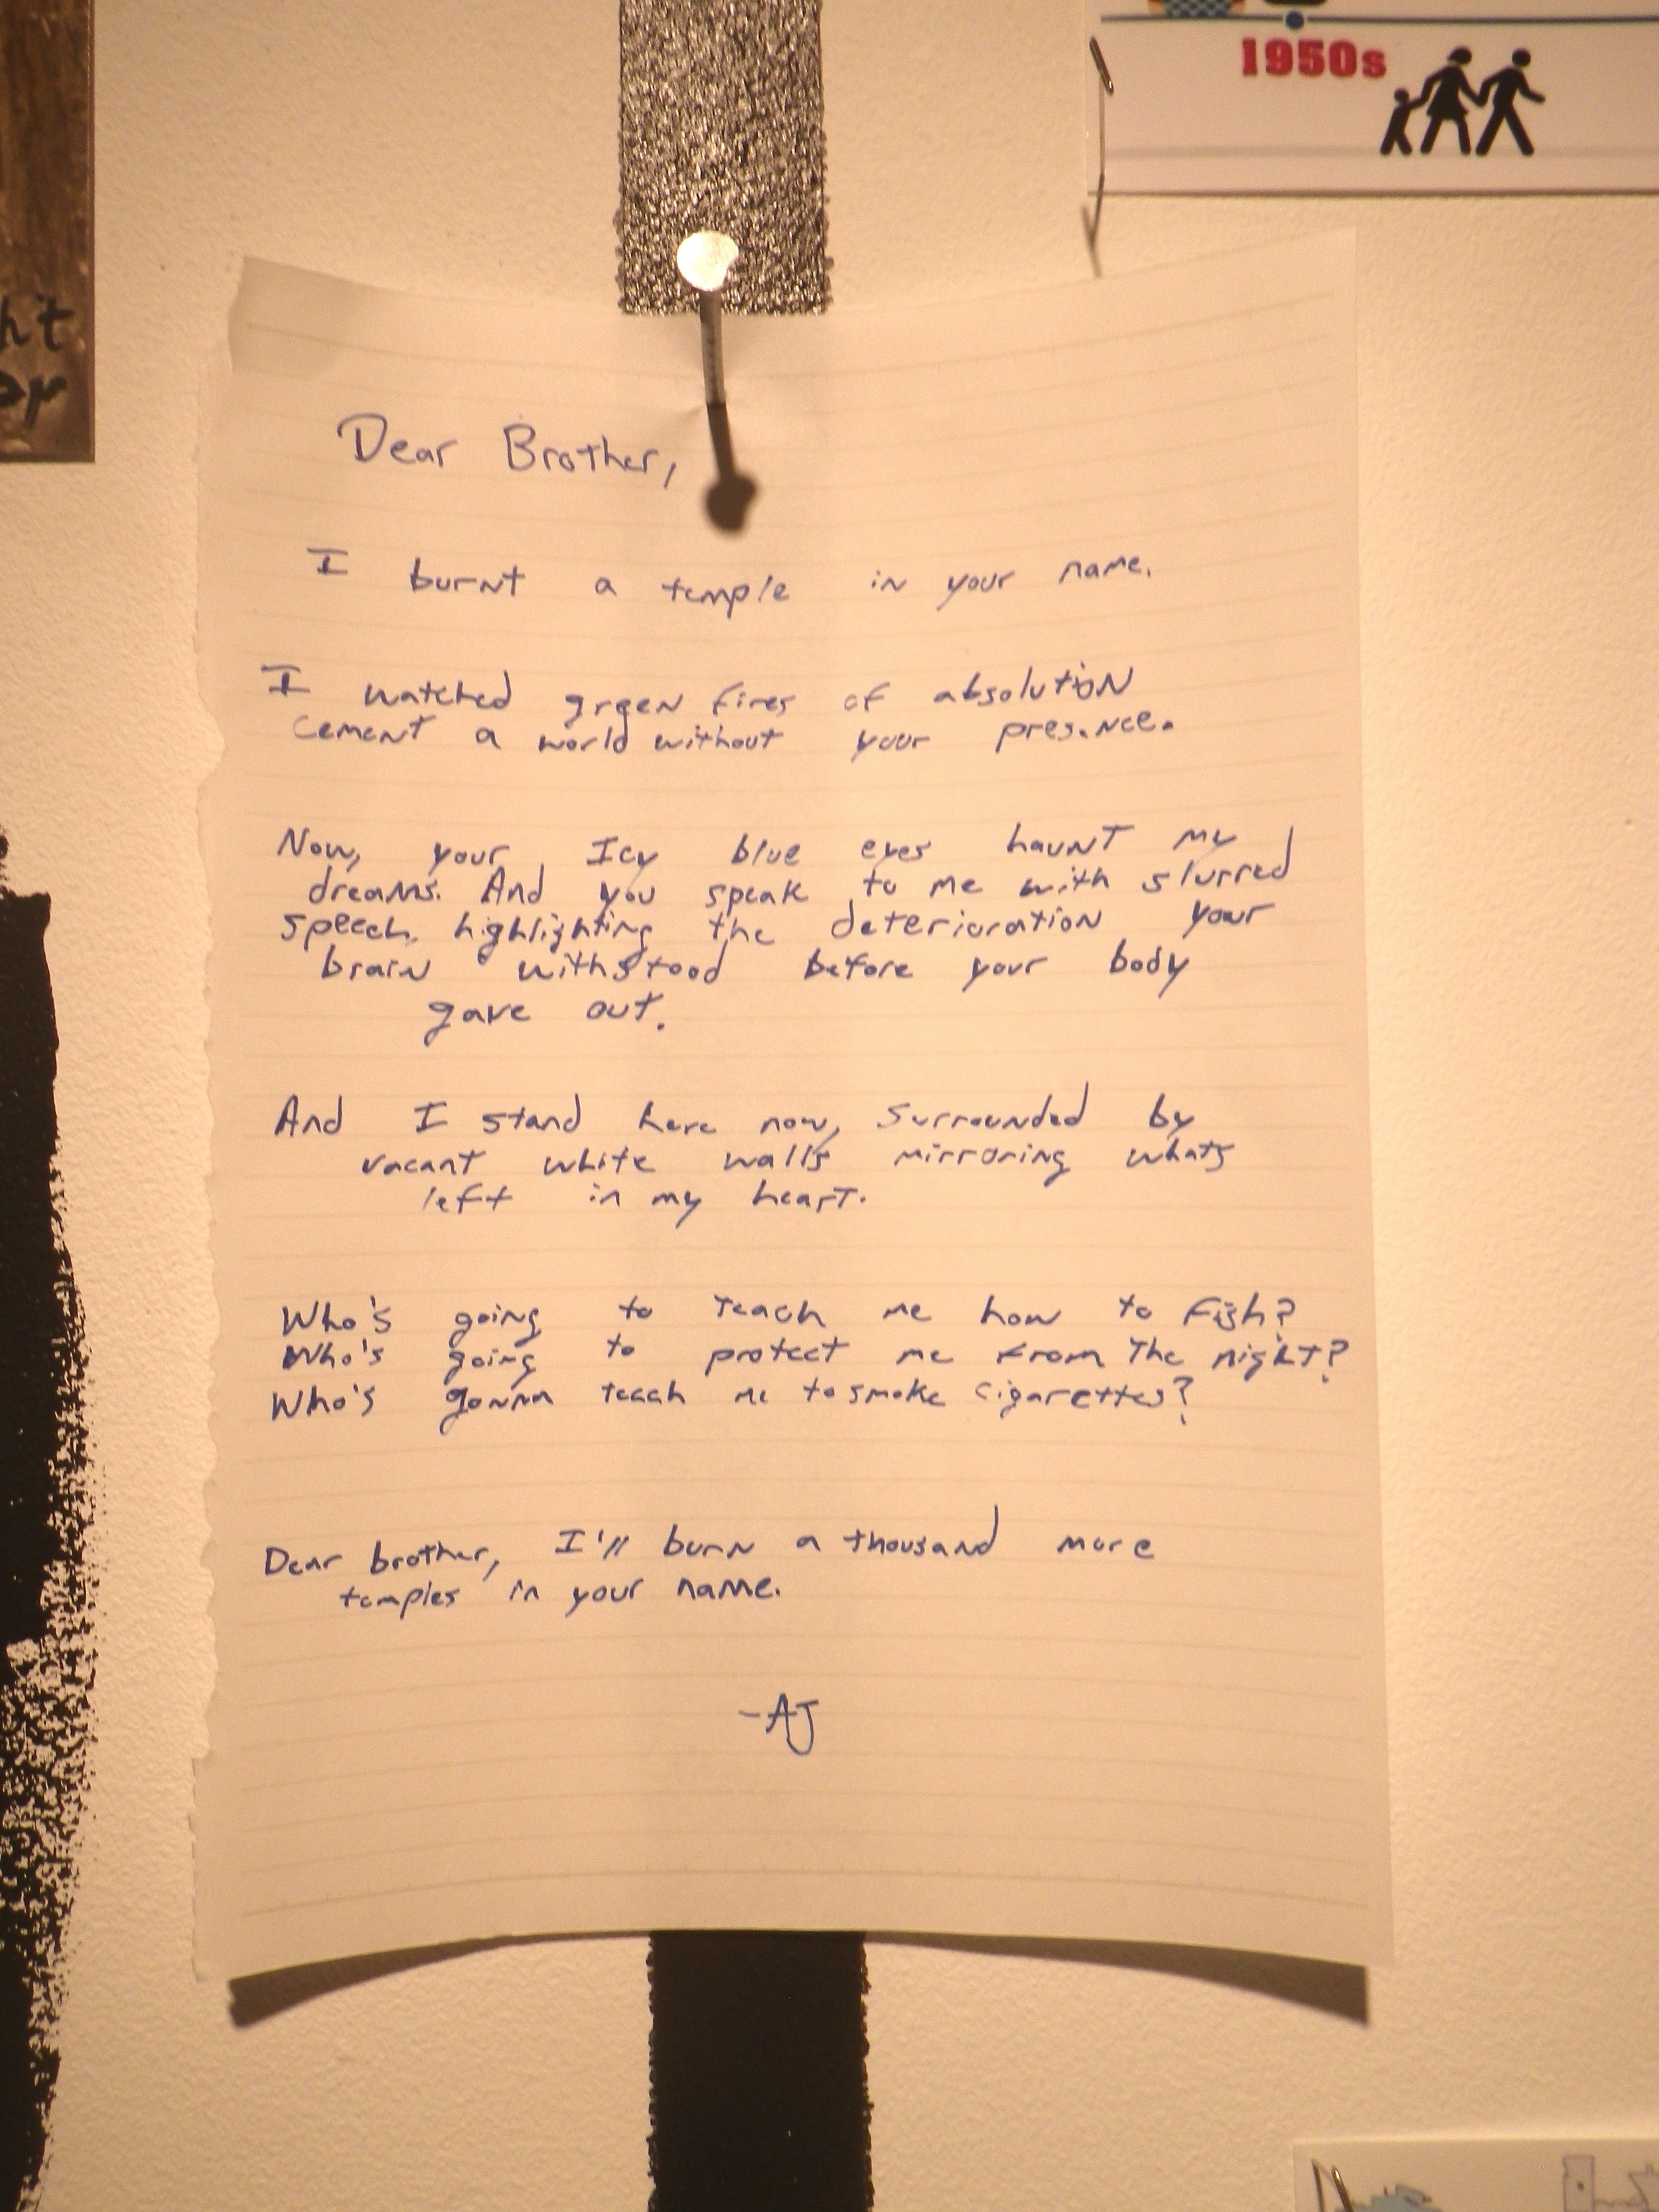 ht
ay
1950s
Dear Brother,
I burnt a temple in your name.
I watched green fires of absolution
cement a world without your presence.
Now, your Icy blue eyes haunt my
dreams. And you speak to me with slurred
speech highlighting the deterioration your
brain withstood before your body
gave out.
And I stand here now, surrounded by
vacant white walls mirroring whats
left in my heart.
Who's going to teach me how to fish?
Who's going to protect me from the night?
Who's gonna teach me to smoke cigarettes?
Dear brother, I'll burn a thousand more
temples in your name.
-AJ